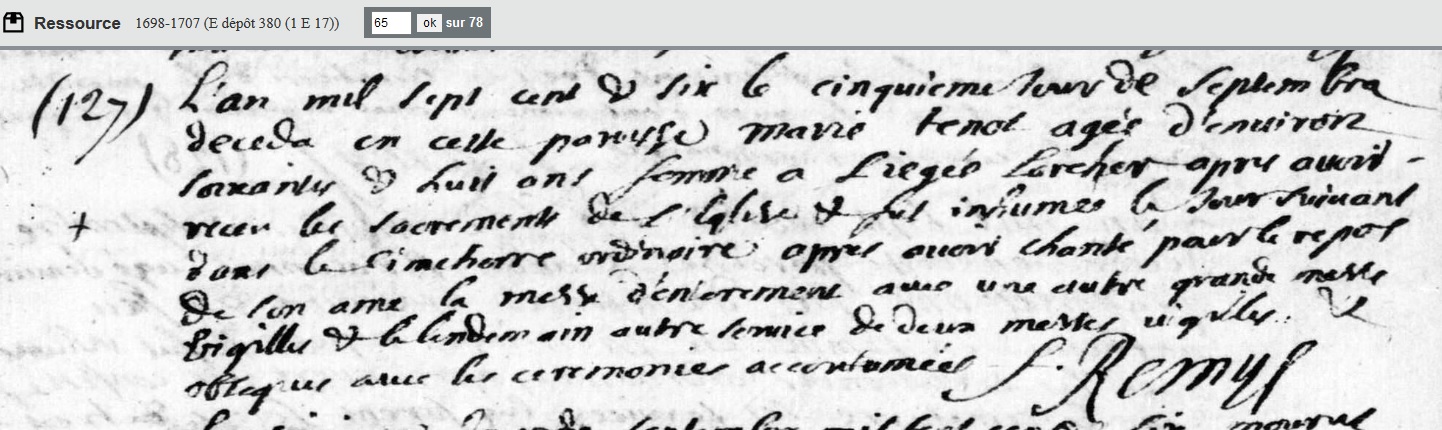 Ressource 1698-1707 (E dépôt 380 (1 E 17)) 65 ok sur 78
(127) L'an mil sept cent & six le cinquieme Jour de Septembre
deceda en cette paroisse marie tenot agée d'environ
soixante & huit ans femme a Liegé Larcher apres avoir
receu les sacrements de l'Eglise & fut inhumee le Jour suivant
dans le Cimethorre ordinaire apres avoir chanté pour le repos
de son ame la messe d'enterement avec une autre grande messe
Vigilles & le lendemain autre service de deux messes vigiles &
obseques avec les ceremonies accoutumées S. Remy